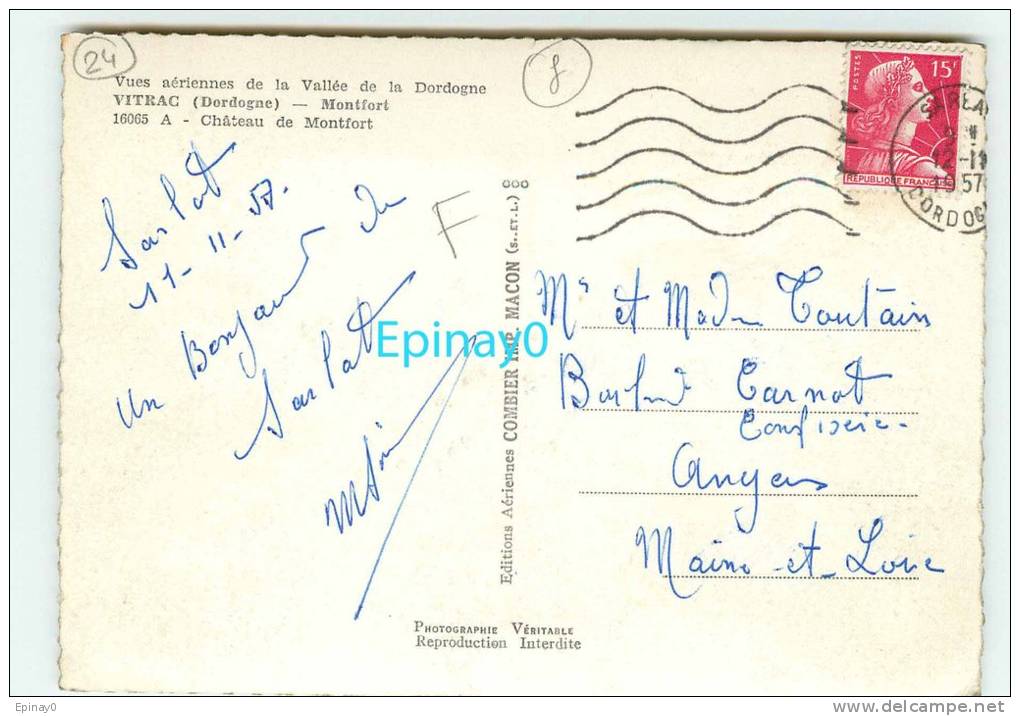 24
Vues aériennes de la Vallée de la Dordogne
VITRAC (Dordogne) — Montfort
16065 A - Château de Montfort
Sarlat
11-11-57.
un Bonjour de
Sarlat
F
Epinay0
Editions Aériennes COMBIER IMP. MACON (S.-ET-L.)
POSTES
15F
REPUBLIQUE FRANÇAISE
12-11
1957
DORDOGNE
Mr et Mdm Toutain
Carnot
Confiserie-
Angers
Maine-et-Loire
PHOTOGRAPHIE VÉRITABLE
Reproduction Interdite
Epinay0
www.delcampe.net